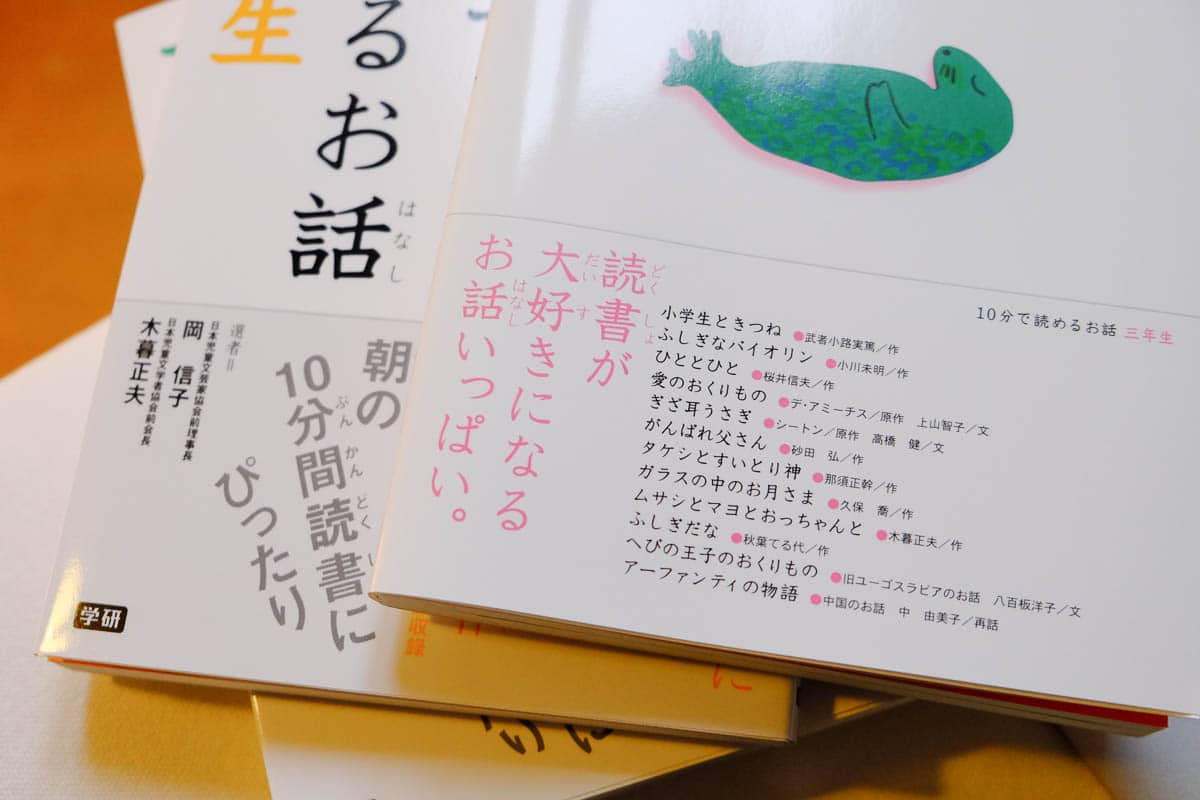 生
るお話
はなし
選者＝
日本児童文芸家協会前理事長
岡　信子
日本児童文学者協会前会長
木暮正夫
朝の
10分間読書に
ぷんかんどくし
ぴったり
学研
収録
に
10分で読めるお話 三年生
読書が
どくしょ
大好きになる
だいす
お話いっぱい。
はなし
小学生ときつね ●武者小路実篤／作
ふしぎなバイオリン ●小川未明／作
ひととひと ●桜井信夫／作
愛のおくりもの ●デ・アミーチス／原作　上山智子／文
ぎざ耳うさぎ ●シートン／原作　高橋　健／文
がんばれ父さん ●砂田　弘／作
タケシとすいとり神 ●那須正幹／作
ガラスの中のお月さま ●久保　喬／作
ムサシとマヨとおっちゃんと ●木暮正夫／作
ふしぎだな ●秋葉てる代／作
へびの王子のおくりもの ●旧ユーゴスラビアのお話　八百板洋子／文
アーファンティの物語 ●中国のお話　中　由美子／再話